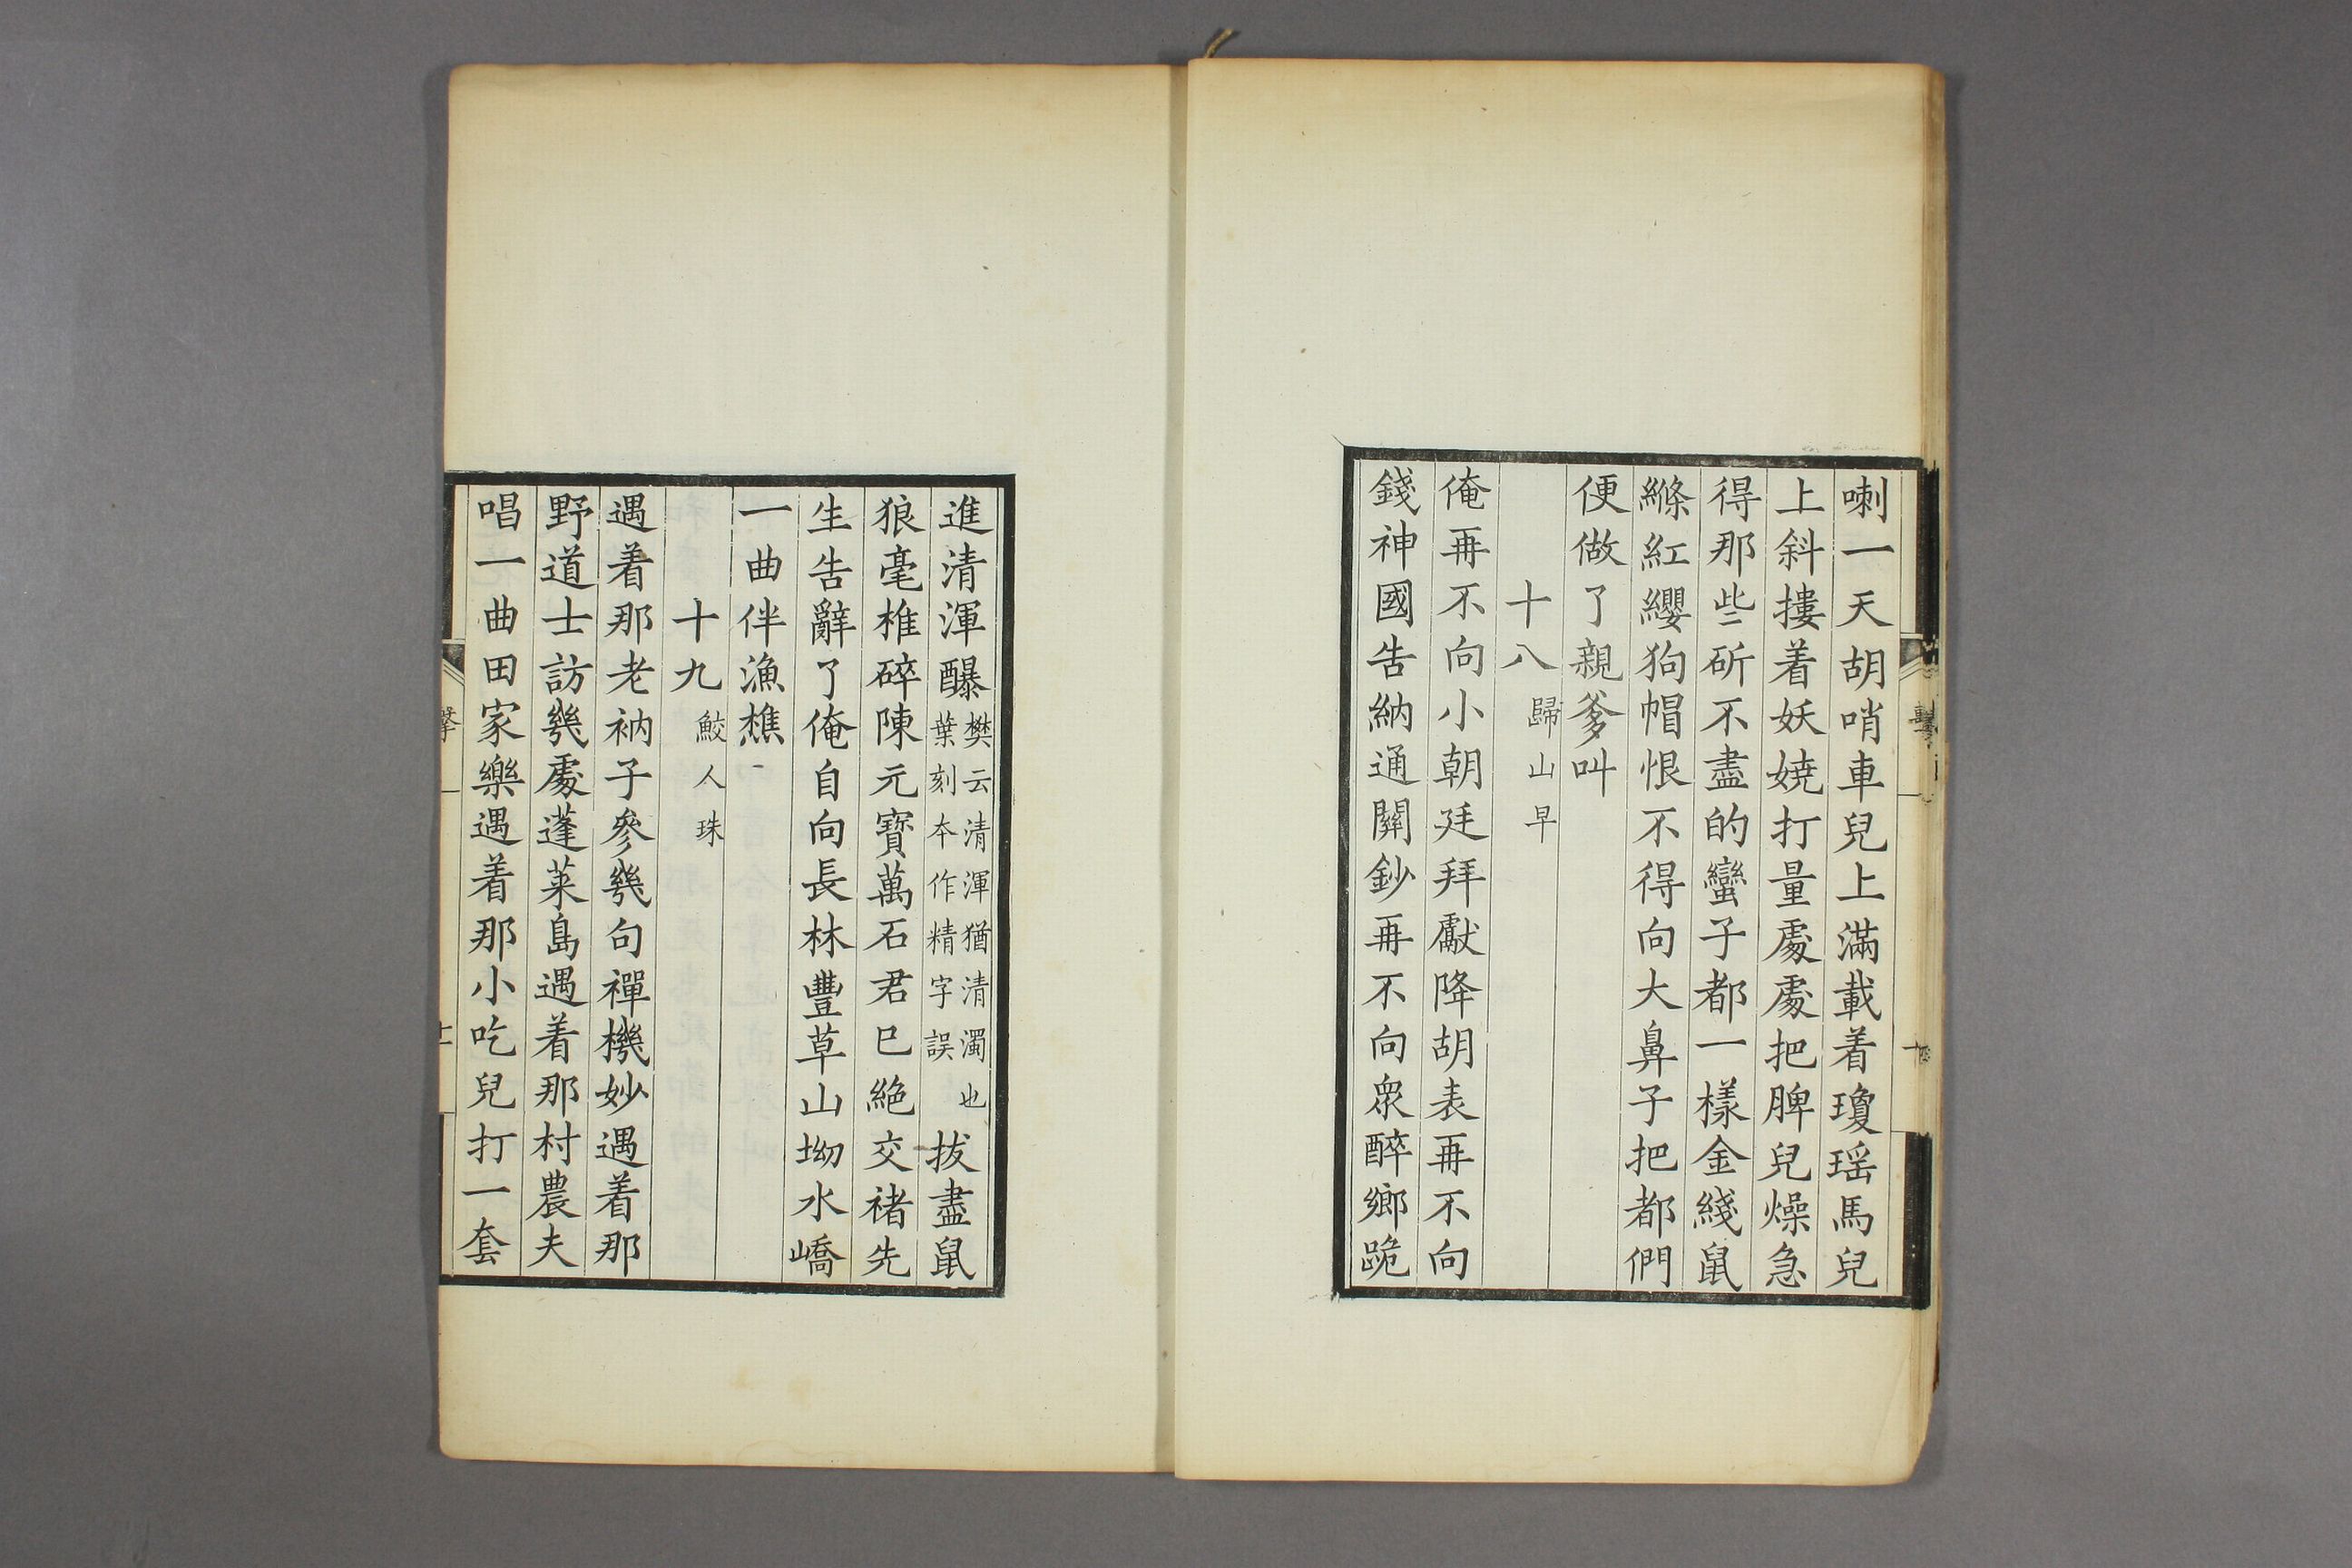 喇一天胡哨車兒上滿載着瓊瑶馬兒
上斜摟着妖嬈打量處處把脾兒燥急
得那些斫不盡的蠻子都一樣金綫鼠
縧紅纓狗帽恨不得向大鼻子把都們
便做了親爹叫
十八歸山早
俺再不向小朝廷拜獻降胡表再不向
錢神國告納通關鈔再不向衆醉鄉跪
進清渾醥樊云清渾猶清濁也葉刻本作精字誤拔盡鼠
狼毫椎碎陳元寶萬石君已絶交褚先
生告辭了俺自向長林豐草山坳水嶠
一曲伴漁樵
十九鮫人珠
遇着那老衲子參幾句禪機妙遇着那
野道士訪幾處蓬萊島遇着那村農夫
唱一曲田家樂遇着那小吃兒打一套